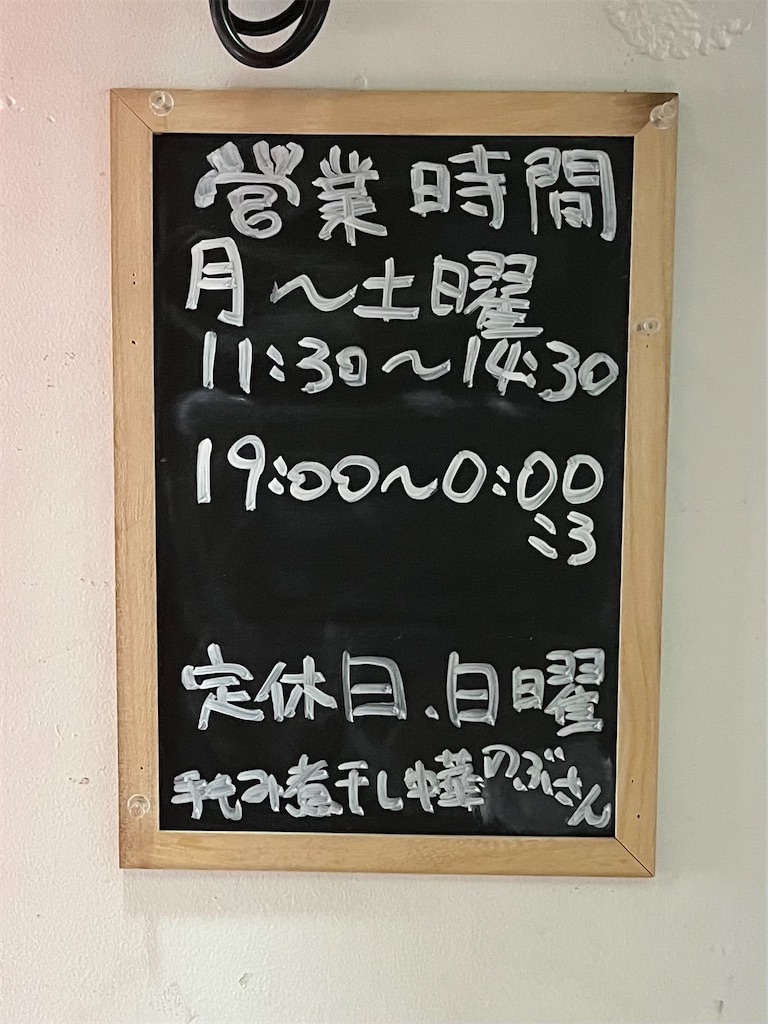 営業時間
月～土曜
11:30～14:30
19:00～0:00
ころ
定休日、日曜
手もみ煮干し中華のぶさん